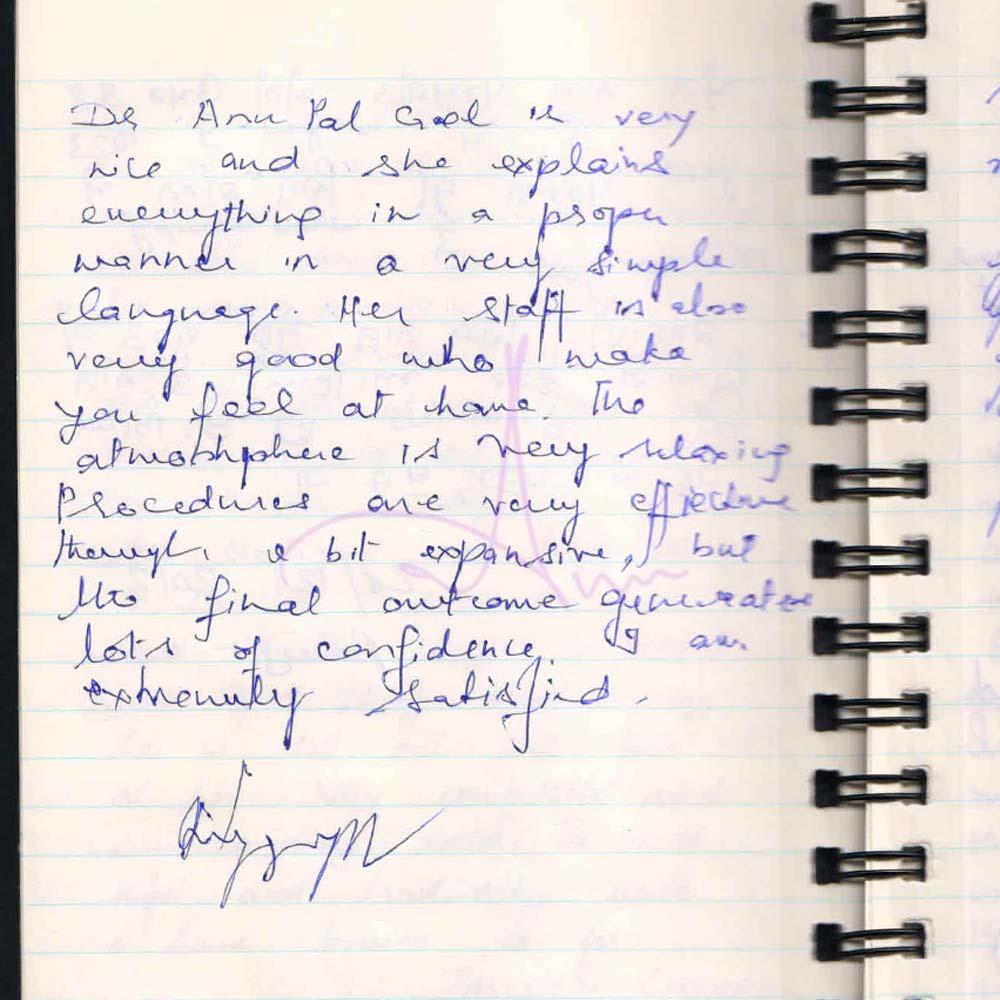 Dr Anu Pal Goel is very
nice and she explains
everything in a proper
manner in a very simple
language. Her staff is also
very good who make
you feel at home. The
atmosphphere is very relaxing
Procedures are very effective
though a bit expansive, but
the final outcome generates
lots of confidence. I am
extremely satisfied.